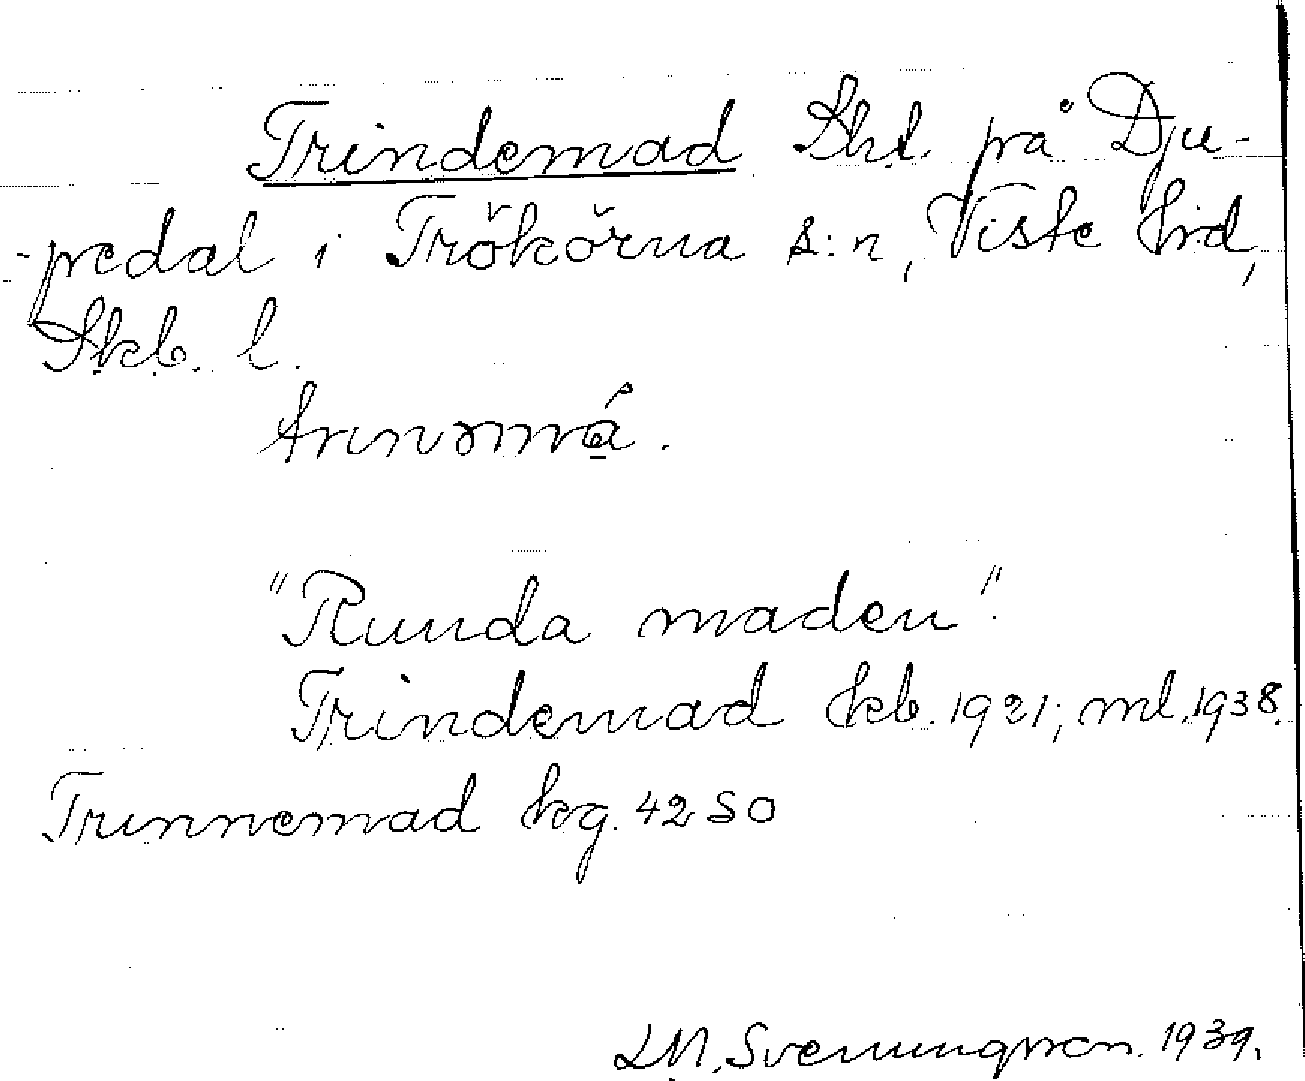 Trindemad Skt. på Dju-
-pedal i Trökörna s:n, Viste hrd,
Skb. l.
trinəmá.
"Runda maden".
Trindemad kb. 1921; ml. 1938.
Trinnemad hg. 42 SO
J.M. Svenungsson. 1939.